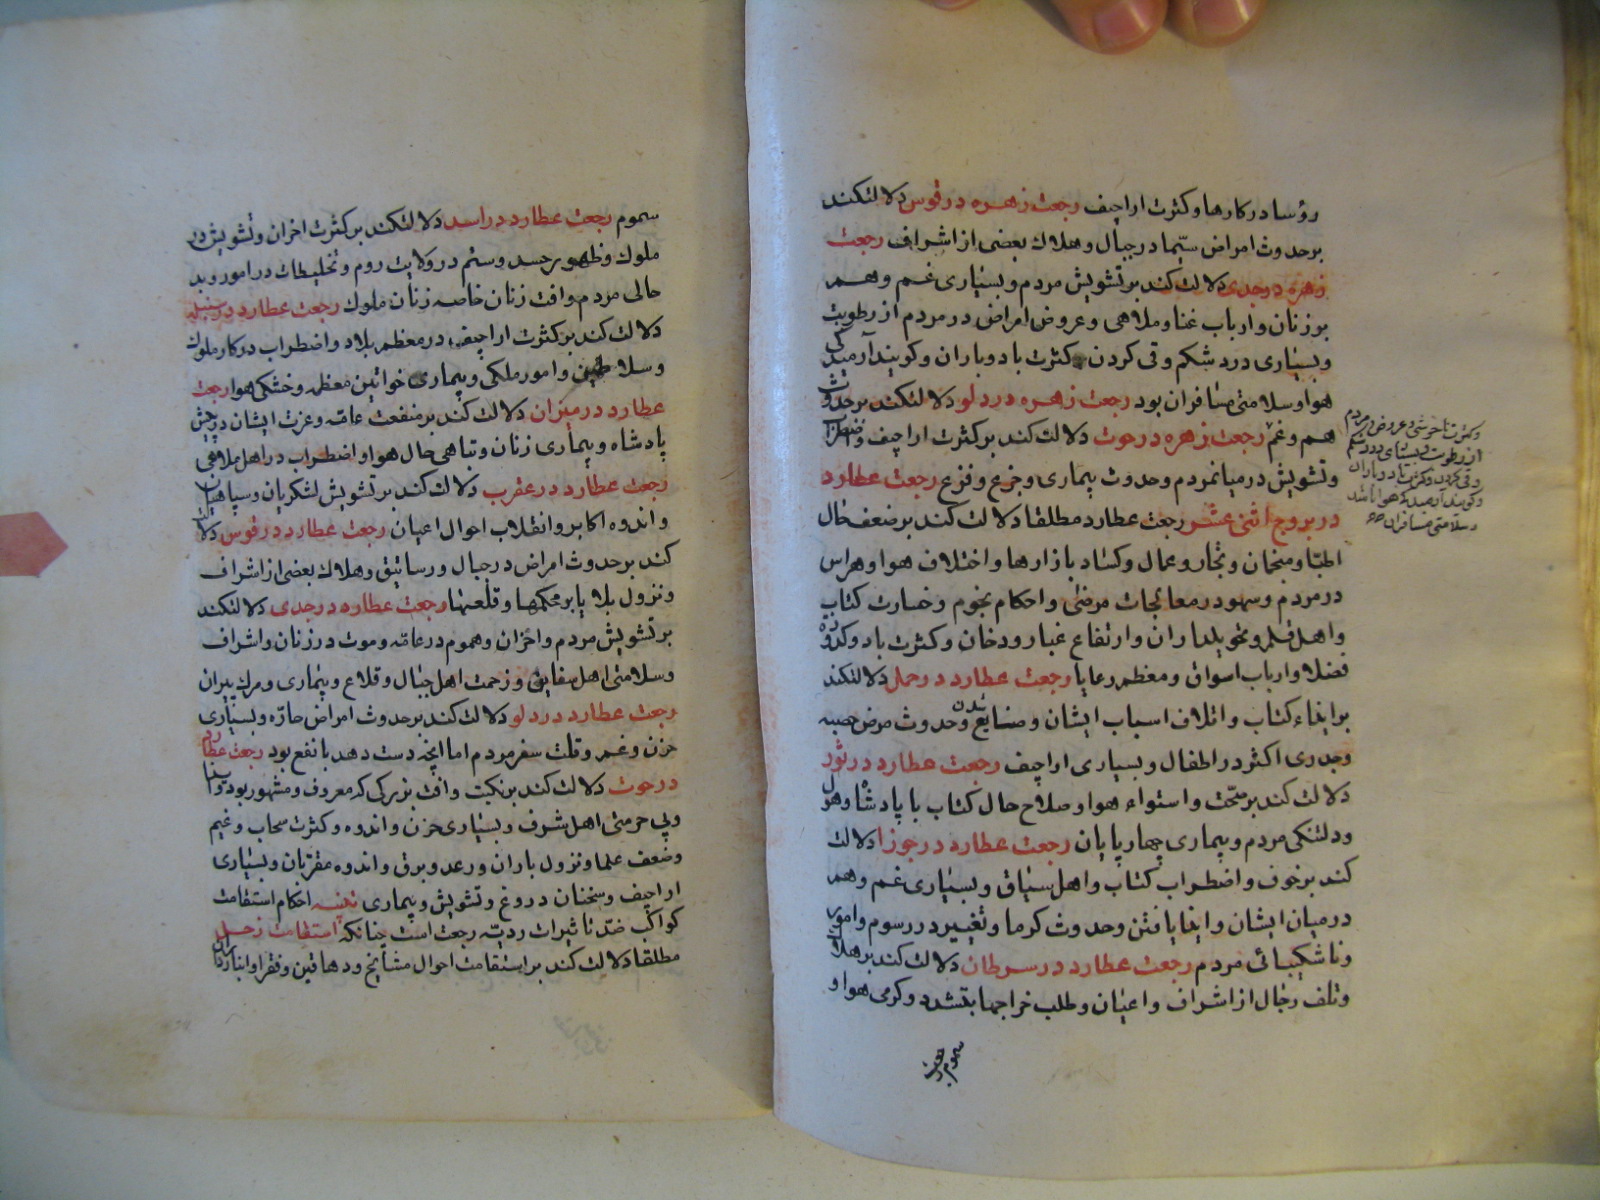 رؤسا در کارها و کثرت اراجیف رجعت زهره در قوس دلالت کند
بر حدوث امراض سیما در جبال و هلاک بعضی از اشراف رجعت
زهره در جدی دلالت کند بر تشویش مردم و بسیاری غم و هم
بر زنان و ارباب غنا و ملاهی و عروض امراض در مردم از رطوبت
و بسیاری درد شکم و قی کردن و کثرت باد و باران و کویند آرمیدکی
هوا و سلامتی مسافران بود رجعت زهره در دلو دلالت کند بر حدوث
هم و غم رجعت زهره در حوت دلالت کند بر کثرت اراجیف و اضطراب
و تشویش در میان مردم و حدوث بیماری و جزع و فزع رجعت عطارد
در بروج اثنی عشر رجعت عطارد مطلقا دلالت کند بر ضعف حال
اطبا و منجمان و تجار و عمال و کساد بازارها و اختلاف هوا و هراس
در مردم و سهو در معالجات مرضی و احکام نجوم و خسارت کتاب
و اهل قلم و تحویلداران و ارتفاع غبار و دخان و کثرت باد و کدورت
فضلا و ارباب اسواق و معظم رعایا رجعت عطارد در حمل دلالت کند
بر ایذاء کتاب و اتلاف اسباب ایشان و ضایع شدن و حدوث مرض حصبه
و جدری اکثر در اطفال و بسیاری اراجیف رجعت عطارد در ثور
دلالت کند بر صحت و استواء هوا و صلاح حال کتاب با پادشاه و هول
و دلتنکی مردم و بیماری چهارپایان رجعت عطارد در جوزا دلالت
کند بر خوف و اضطراب کتاب و اهل سیاق و بسیاری غم و هم
در میان ایشان و ایذا یافتن و حدوث کرما و تغییر در رسوم و امور
و ناشکیبائی مردم رجعت عطارد در سرطان دلالت کند بر هلاک
و تلف رجال از اشراف و اعیان و طلب خراجها بتشدد و کرمی هوا و
سموم
و کثرت ناخوشی و عروض در مردم
از رطوبت و بسیاری درد شکم
و قی کردن و کثرت باد و باران
و کویند آرمیدکی هوا باشد
و سلامتی مسافران
سموم رجعت عطارد در اسد دلالت کند بر کثرت احزان و تشویش در
ملوک و ظهور حسد و ستم در ولایت روم و تخلیطات در امور و بد
حالی مردم و آفت زنان خاصه زنان ملوک رجعت عطارد در سنبله
دلالت کند بر کثرت اراجیف در معظم بلاد و اضطراب در کار ملوک
و سلاطین و امور ملکی و بیماری خواتین معظمه و خشکی هوا رجعت
عطارد در میزان دلالت کند بر منفعت عامه و عزت ایشان در پیش
پادشاه و بیماری زنان و تباهی حال هوا و اضطراب در اهل ملاهی
رجعت عطارد در عقرب دلالت کند بر تشویش لشکریان و سپاهیان
و اندوه اکابر و انقلاب احوال اعیان رجعت عطارد در قوس دلالت
کند بر حدوث امراض در جبال و رساتیق و هلاک بعضی از اشراف
و نزول بلایا بر محکمها و قلعها رجعت عطارد در جدی دلالت کند
بر تشویش مردم و احزان و هموم در عامه و موت در زنان و اشراف
و سلامتی اهل سفاین و زحمت اهل جبال و قلاع و بیماری و مرک پیران
رجعت عطارد در دلو دلالت کند بر حدوث امراض حاره و بسیاری
حزن و غم و قلت سفر مردم اما آنچه دست دهد با نفع بود رجعت عطارد
در حوت دلالت کند بر نکبت و آفت بزرکی که معروف و مشهور بود
و بی حرمتی اهل شرف و بسیاری حزن و اندوه و کثرت سحاب و غیم
و ضعف علما و نزول باران و رعد و برق و اندوه مقربان و بسیاری
اراجیف و سخنان دروغ و تشویش و بیماری تنبیه احکام استقامت
کواکب ضد تاثیرات ردیه رجعت است چنانکه استقامت زحل
مطلقا دلالت کند بر استقامت احوال مشایخ و دهاقین و فقرا و